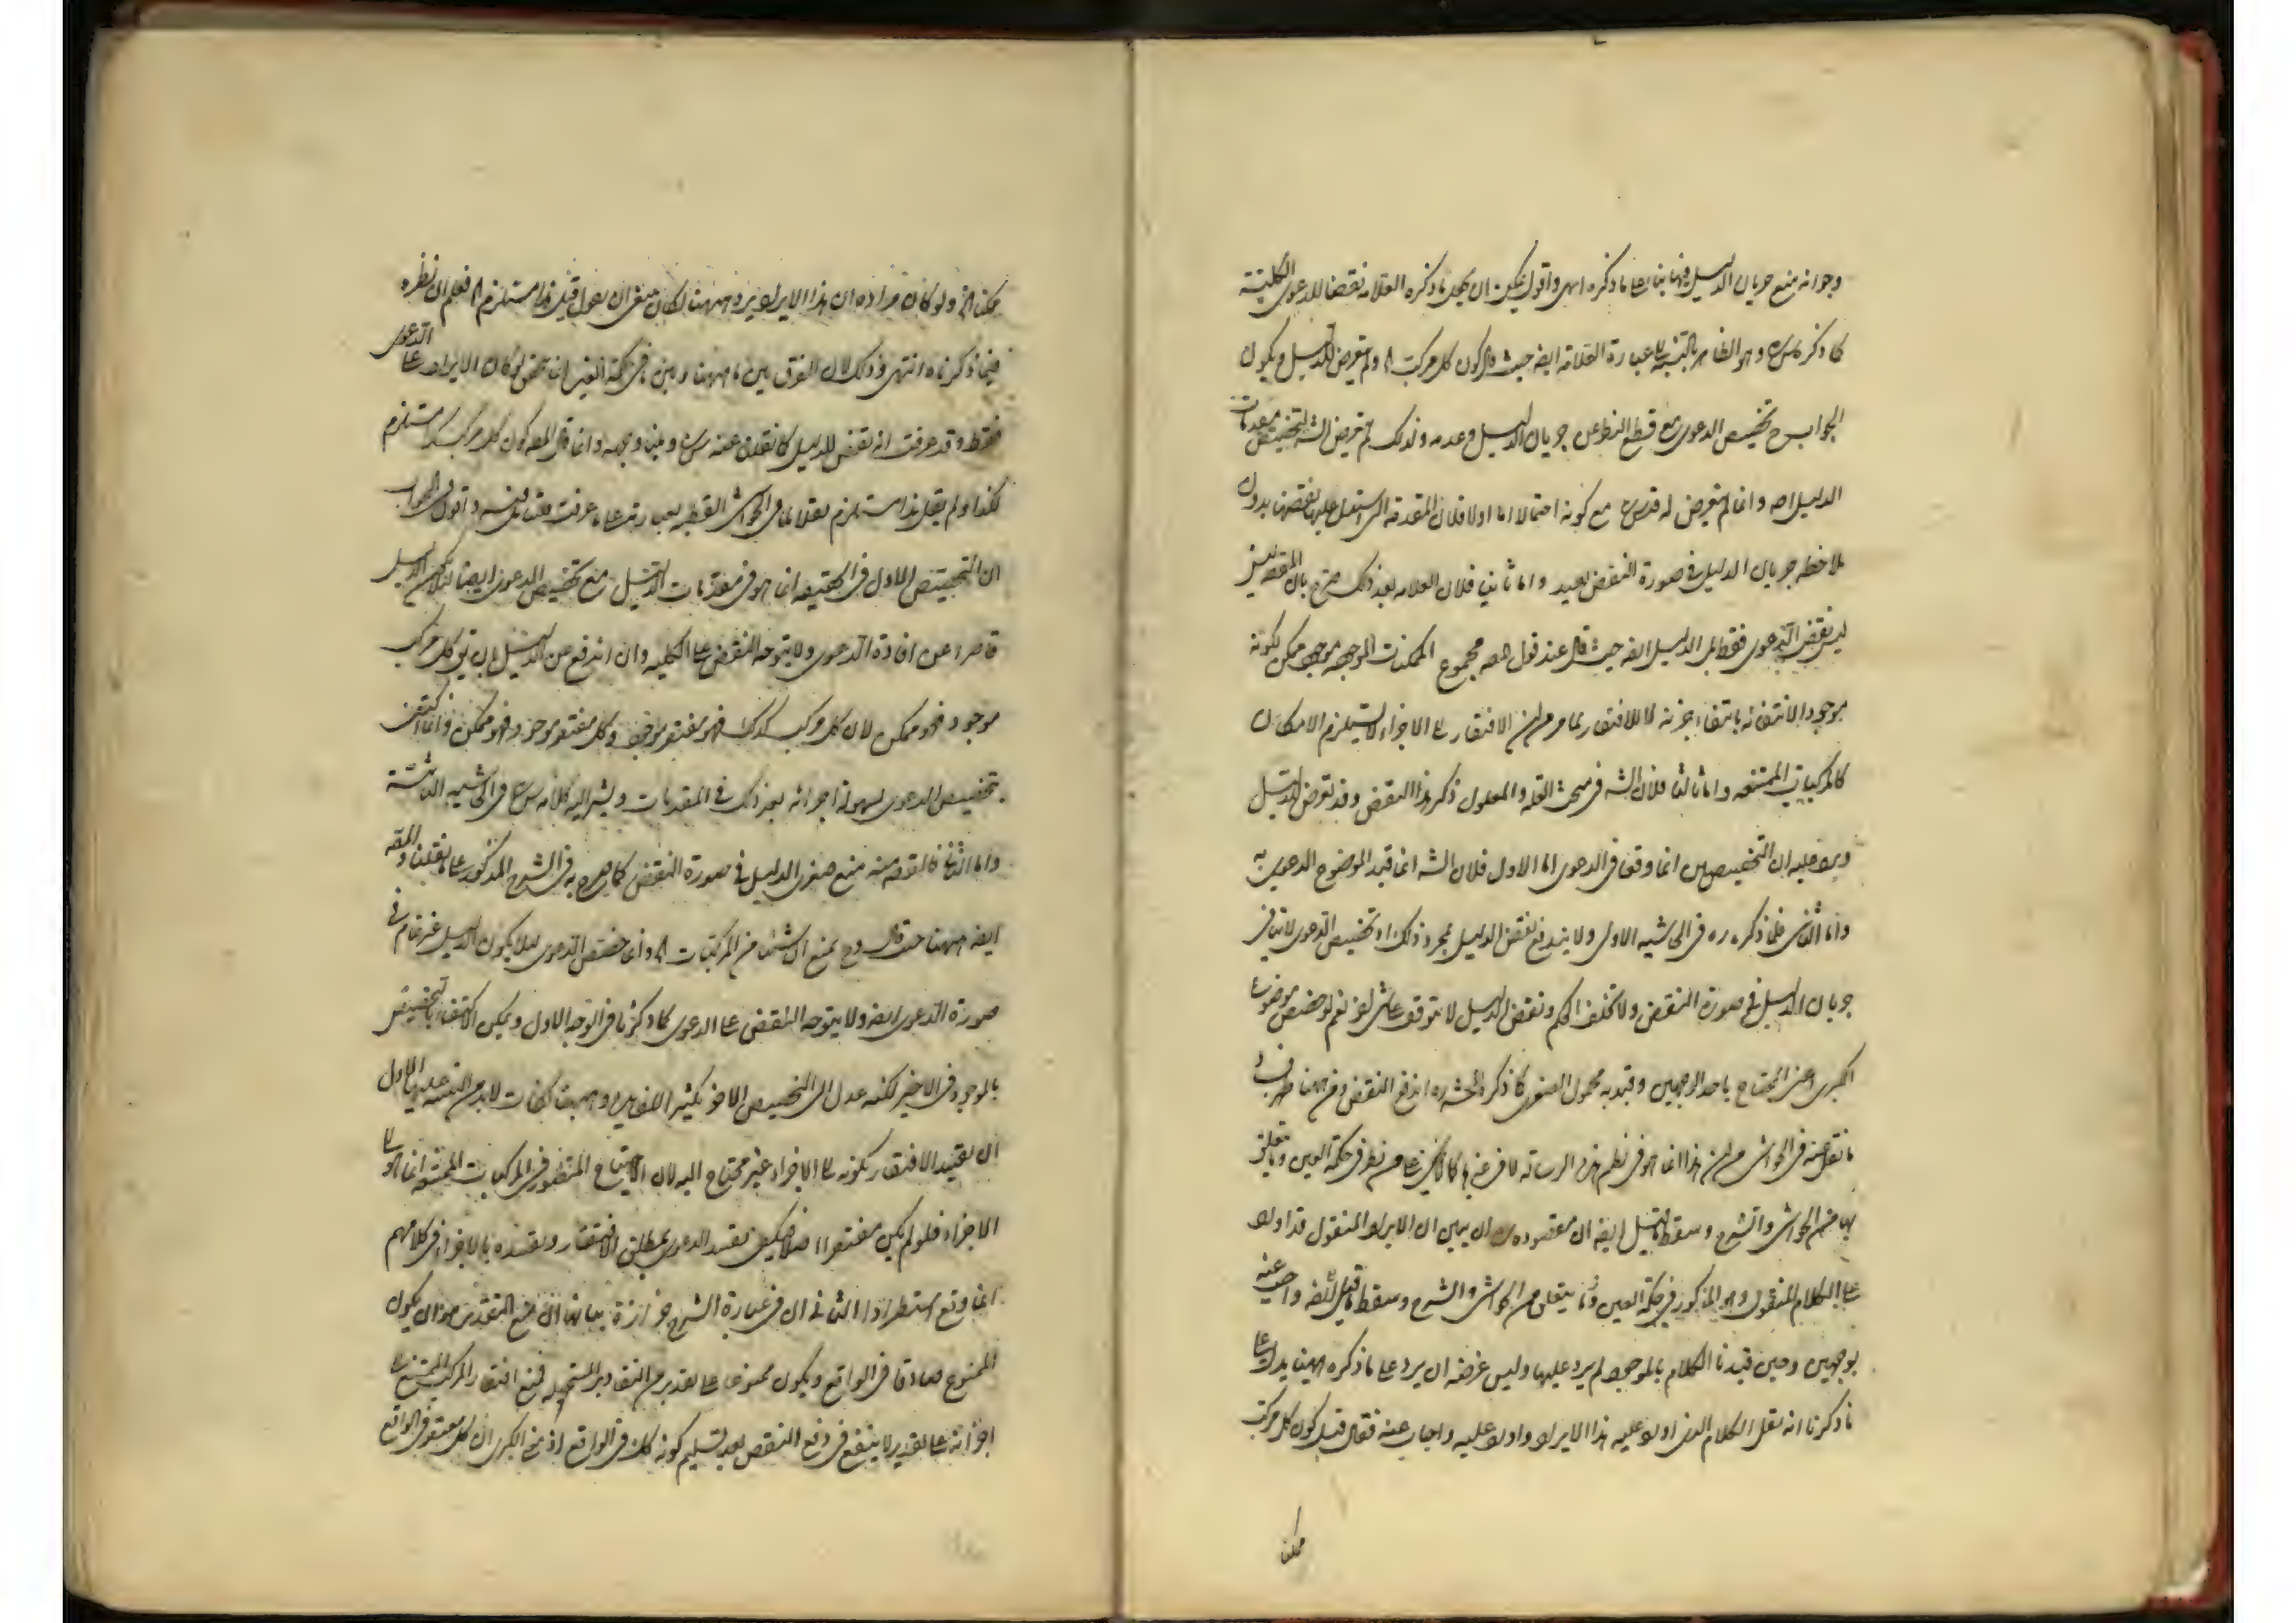 وجوابه منع جريان الدليل فيها بناء على ما ذكره انتهى واقول يمكن ان يحمل ما ذكره العلامة نقضا للدعوى الكلية
كما ذكر وهو الظاهر بالنسبة الى عبارة العلامة ايضا حيث قال كون كل مركب الخ ولم يتعرض للدليل ويكون
الجواب ح تخصيص الدعوى مع قطع النظر عن جريان الدليل وعدمه ولذلك لم يتعرض الش لتخصيص مقدمات
الدليل اصلا وانما لم يتعرض له قدس سره مع كونه احتمالا اما اولا فلان المقدمة التى استدل عليها نقضها بدون
ملاحظة جريان الدليل فى صورة النقض بعيد واما ثانيا فلان العلامة بعد ذلك صرح بان المقصود
ليس نقض الدعوى فقط بل الدليل ايضا حيث قال عند قول المص مجموع الممكنات الموجودة موجود ممكن لكونه
موجودا لانتفائه بانتفاء جزئه لا للافتقار لما مر من ان الافتقار الى الاجزاء لا يستلزم الامكان
كالمركبات الممتنعة واما ثالثا فلان الش فى مبحث العلة والمعلول ذكر هذا النقض وقد تعرض للدليل
ويرد عليه ان التخصيصين انما وقعا فى الدعوى اما الاول فلان الش انما قيد الموضوع الدعوى به
واما الثانى فلما ذكره ره فى الحاشية الاولى ولا يندفع نقض الدليل بمجرد ذلك اذ تخصيص الدعوى لا ينافى
جريان الدليل فى صورة النقض ولا تخلف الحكم ونقض الدليل لا يتوقف على شئ اخر نعم لو خصص موضوع
الكبرى اعنى المحتاج باحد الوجهين وقيد به محمول الصغرى كما ذكره المحشى ره اندفع النقض ومن ههنا ظهر
ما نقل عنه فى الحواشى من ان هذا انما هو فى نظم هذه الرسالة لا فى غيرها كما لا يخفى على من نظر فى حكمة العين وما يتعلق
بها من الحواشى والشرح وسقط ما قيل ايضا ان مقصوده ره ان يبين ان الايراد المنقول قد اورد
على الكلام المنقول وهو المذكور فى حكمة العين وما يتعلق من الحواشى والشرح وسقط ما قيل ايضا واجيب عنه
بوجهين وحين قيدنا الكلام بالموجود لم يرد عليها وليس غرضه ان يرد على ما ذكره ههنا يدل على
ما ذكرنا انه نقل الكلام الذى اورد عليه هذا الايراد واورد عليه واجاب عنه فقال قيل كون كل مركب
ممكنا
ممكنا الخ ولو كان مراده ان هذا الايراد يرد ههنا لكان ينبغى ان يقول قيل هذا مستلزم الخ فعلم ان نظره
فيما ذكرناه انتهى وذلك لان الفرق بين ما ههنا وبين ما فى حكمة العين انما يتحقق لو كان الايراد على الدعوى
فقط وقد عرفت انه نقض للدليل كما نقلنا عنه وبينا وجهه وانما قال المص كون كل مركب مستلزم
لكذا ولم يقل هذا مستلزم نقلا لما فى الحواشى القطبية بعبارته على ما عرفت واقول فى الجواب
ان التخصيص الاول فى الحقيقة انما هو فى مقدمات الدليل مع تخصيص الدعوى ايضا لئلا يكون الدليل
قاصرا عن افادة الدعوى ولا يتوجه النقض على الكلية وان اندفع عن الدليل بان يقال كل مركب
موجود فهو ممكن لان كل مركب كذلك فهو مفتقر موجود وكل مفتقر موجود فهو ممكن وانما اكتفى
بتخصيص الدعوى لسهولة اجرائه بعد ذلك فى المقدمات ويشير اليه كلامه فى الحاشية الثالثة
واما الثانى فالمقصود منه منع صغرى الدليل فى صورة النقض كما صرح به فى الشرح المذكور على ما نقلنا والمص
ايضا ههنا حيث قال وح يمنع ان شيئا من المركبات الخ وانما خصص الدعوى لئلا يكون الدليل غير تمام فى
صورة الدعوى ايضا ولا يتوجه النقض على الدعوى كما ذكرنا فى الوجه الاول ويمكن الاكتفاء بتخصيص
بالموجود فى الاخير لكنه عدل الى التخصيص الاخر تكثيرا للفائدة وههنا كلمات لابد من التنبيه عليها الاول
ان تقييد الافتقار بكونه الى الاجزاء غير محتاج اليه لان الاحتياج المنظور فى المركبات الممتنعة انما هو الى
الاجزاء فلو لم يكن مفتقرا اصلا فيكفى تقييد الدعوى بمطلق الافتقار وتقييده بالاجزاء فى كلامهم
انما وقع استطرادا الثانى ان فى عبارة الشرح حزازة بيانها ان منع التقدير هو ان يكون
الممنوع صادقا فى الواقع ويكون ممنوعا على تقدير من التقادير المستحيلة فمنع افتقار المركب الممتنع الى
اجزائه على تقدير لا ينفع فى دفع النقض بعد تسليم كونه كذلك فى الواقع اذ نمنع الكبرى ان كل مفتقر فى الواقع